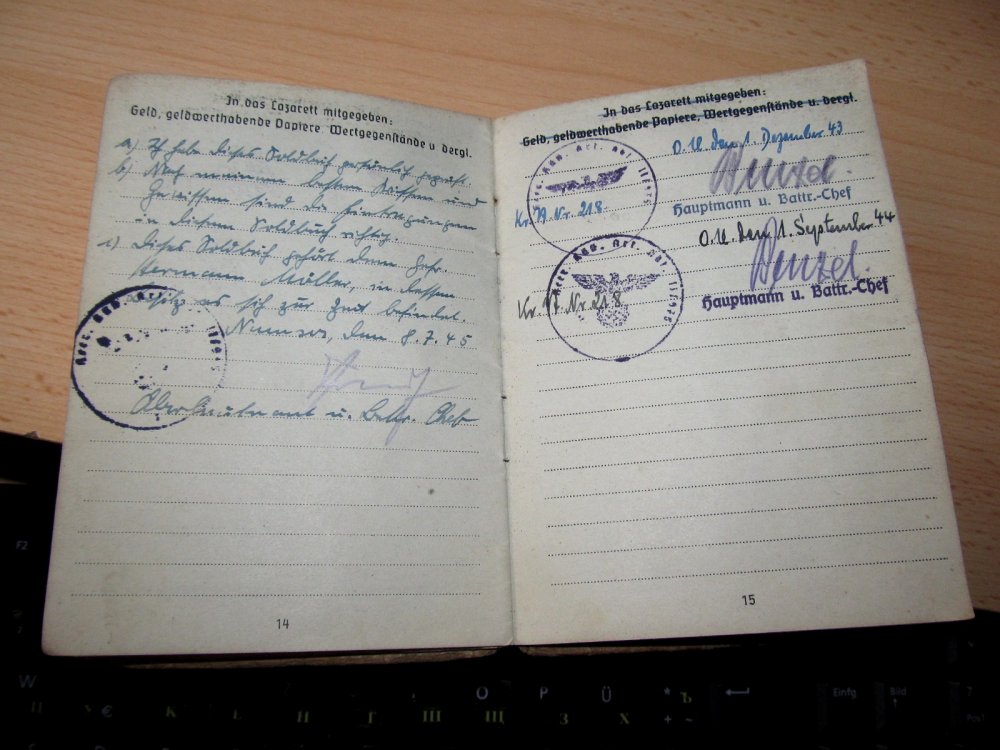 In das Lazarett mitgegeben:
Geld, geldwerthabende Papiere, Wertgegenstände u. dergl.
a) Ich habe dieses Soldbuch persönlich geprüft.
b) Nach meinem besten Wissen und
Gewissen sind die Eintragungen
in diesem Soldbuch richtig.
c) Dieses Soldbuch gehört dem Gefr.
Hermann Möller, in dessen
Besitz es sich zur Zeit befindet.
den 8.7.45
Oberleutnant u. Battr. Chef
14
In das Lazarett mitgegeben:
Geld, geldwerthabende Papiere, Wertgegenstände u. dergl.
O.U. den 1. Dezember 43
Kr. Nr. 218.
Hauptmann u. Battr.-Chef
O.U. den 1. September 44
Kr. Nr. 218
Hauptmann u. Battr.-Chef
15
F2
W
O
P
Ü
*
Ъ
+
~
Einfg
Bild
€
К
Г
Ш
Щ
З
Х
Pos1